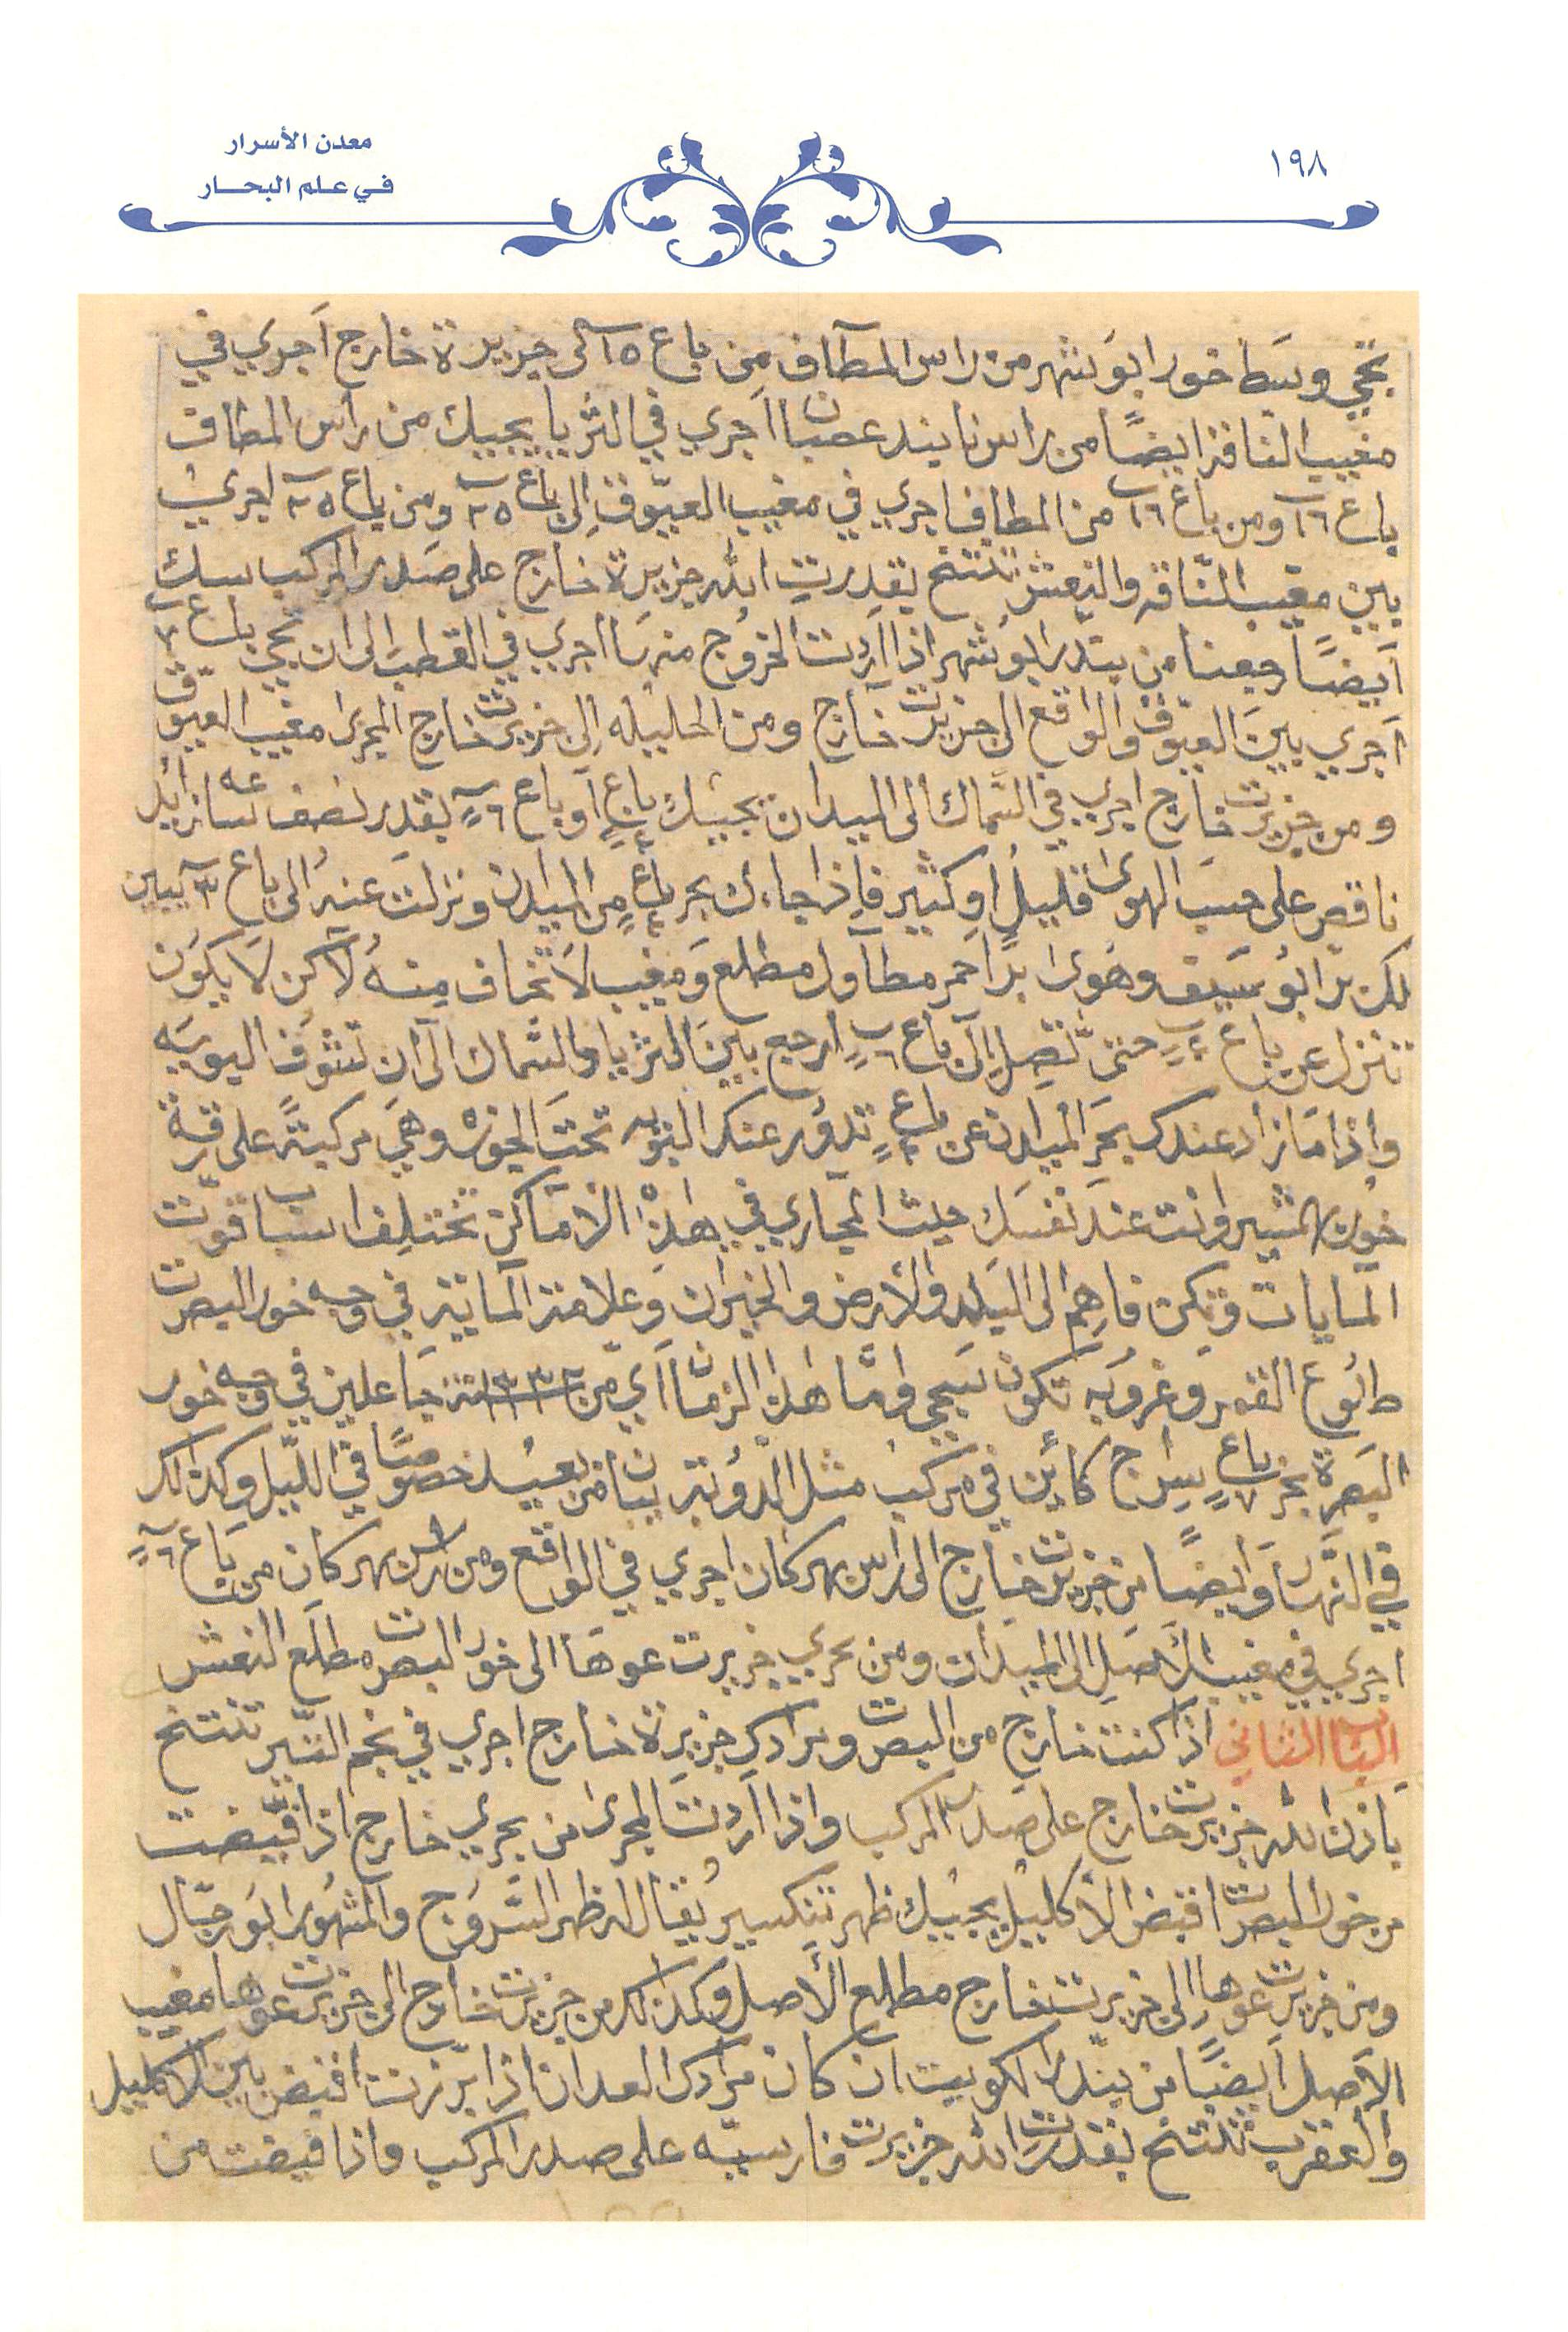 معدن الأسرار
في علم البحار
١٩٨
تجي وسَط خور ابوَشهر من راس المطآف مِن باع ١٥ الى جزيرة خارج آجري في
مغيب الناقة ايضًا من راس نايند عصبان اجري في الثريا يجيبك من راس المطاف
باع ١٦ ومن باع ١٦ من المطاف اجري في مغيب العيّوق اِلى باع ٢٥ ومن باع ٢٥ اجري
بين مغيب النّاقه والنعش تنتتخ بقدرتِ الله جزيرة خارج على صَدر المركب
آيضًا رجعنا من بندر ابوُشهر اذا آردت الخروُج منهَا اجري في القطب الى ان تجي باع ٧
آجري بينَ العيّوق والواقع الى جزيرت خارج ومن الحليله اِلى جزيرت خارج المجرا مغيب العيوّق
ومن جزيرت خارج اجري في السّماك الى الميدان يجيبك باع او باع ٦ بقدر نصف ساعه زايد
ناقص على حسَب الهوىٰ قليل اوكثير فاِذا جاءك بحر باع ٤ مِن الميدان ونزلت عنهُ الى باع ٣ يبين
لك بر ابوُ سَيف وهوَ برًا احمر مطآول مطلع وَمغيب لاَ تخاف مِنهُ لآكن لاَ يكوُن
تنزل عن باع ٤ حتىّ تصِل اِلىٰ باع ٦ ارجع بينَ الثريا والسّماك الىٰ ان تشوُف البويَه
واِذا مَا زاد عندك بحَر الميدان عن باع ٤ تدوُر عنك البوُيه تحتَ الجوُش وهيَ مركبتهً على رقة
خوُر المشير وانت عند نفسَك حيث المجاري في هٰذه الامَاكن تختلِف اسباب قوُت
المايات وتكن فاهِم الى البَلد والارض والخيران وَعلامة المايَة في وجه خور البصرت
طلوُع القمر وغروُبه تكوُن سَجي وامّا هٰذا الزمان آي من سنة ١٣٣٢ جَاعلين في وجه خور
البَصرة بحر باع ٧ سِراج كائِن في مركب مثل الدوُنة يبان من بعيُد خصوُصًا في اللّيل وكذالك
في النّهار وَايضًا من جزيرت خارج الى راس بهركان اجري في الواقع ومن راس بهركان من باع ٦
اجري في مغيب الأصَلِ الى الميدان ومن بحري جزيرت عوهَا الى خور البصرت مطلَع النعش
الباب الثاني اذا كنت خارج من البصرت ومرادك جزيرة خارج اجري في نجم التّير تنتتخ
بآذن الله جزيرت خارج على صَدر المركب واذا آردتَ المجرى من بحري خارج اذا قبّضت
من خور البصرت اقبض الأكليل يجيبك ظهر تنكسير يُقال له ظهر السّروُج والمشهُور ابوَرجال
ومن جزيرت عوُها اِلى جزيرت خارج مطلع الأصل وكذالك من جزيرت خارج الى جزيرت عوُها مغيب
الاصل آيضًا من بندر الكويت ان كان مرادك العدان اذا برّزت اقبض بين الاكليل
والعقرب تنتتخ بقدرت الله جزيرت فارسيّه على صدر المركب واذا قبضت من